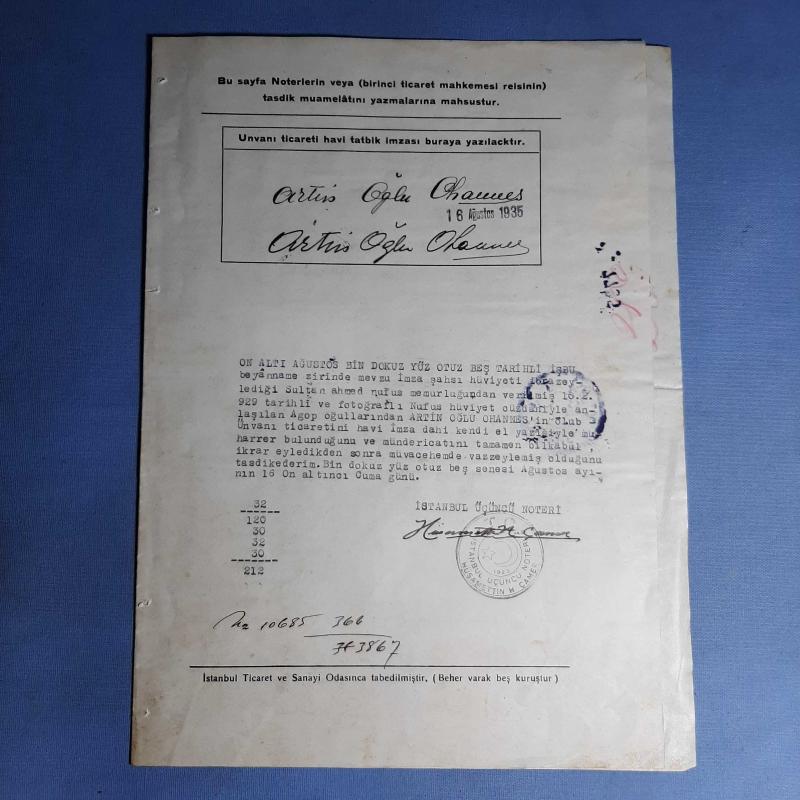 Bu sayfa Noterlerin veya (birinci ticaret mahkemesi reisinin)
tasdik muamelâtını yazmalarına mahsustur.
Unvanı ticareti havi tatbik imzası buraya yazılacktır.
Artin Oğlu Ohannes
16 Ağustos 1935
Artin Oğlu Ohannes
ON ALTI AĞUSTOS BİN DOKUZ YÜZ OTUZ BEŞ TARİHLİ İŞBU
beyânname zirinde mevzu İmza şahsı hüviyeti ibrazey-
lediği Sultan ahmed nufus memurluğundan verilmiş 16.2.
929 tarihli ve fotoğraflı Nufus hüviyet cüzdaniyle an-
laşılan Agop oğullarından ARTİN OĞLU OHANNES'in olub
Ünvanı ticaretini havi İmza dahi kendi el yazisiyle mu
harrer bulunduğunu ve münderîcatını tamamen bilkabul,
ikrar eyledikden sonra müvacehemde vazzeylemiş olduğunu
tasdikederim.Bin dokuz yüz otuz beş senesi Ağustos ayı-
nın 16 On altıncı Cuma günü.
32
120
30
32
30
212
İSTANBUL ÜÇÜNCÜ NOTERİ
İSTANBUL ÜÇÜNCÜ NOTERİ
HÜSAMETTİN H. ÇAMER
10685 366
3867
İstanbul Ticaret ve Sanayi Odasınca tabedilmiştir, (Beher varak beş kuruştur)